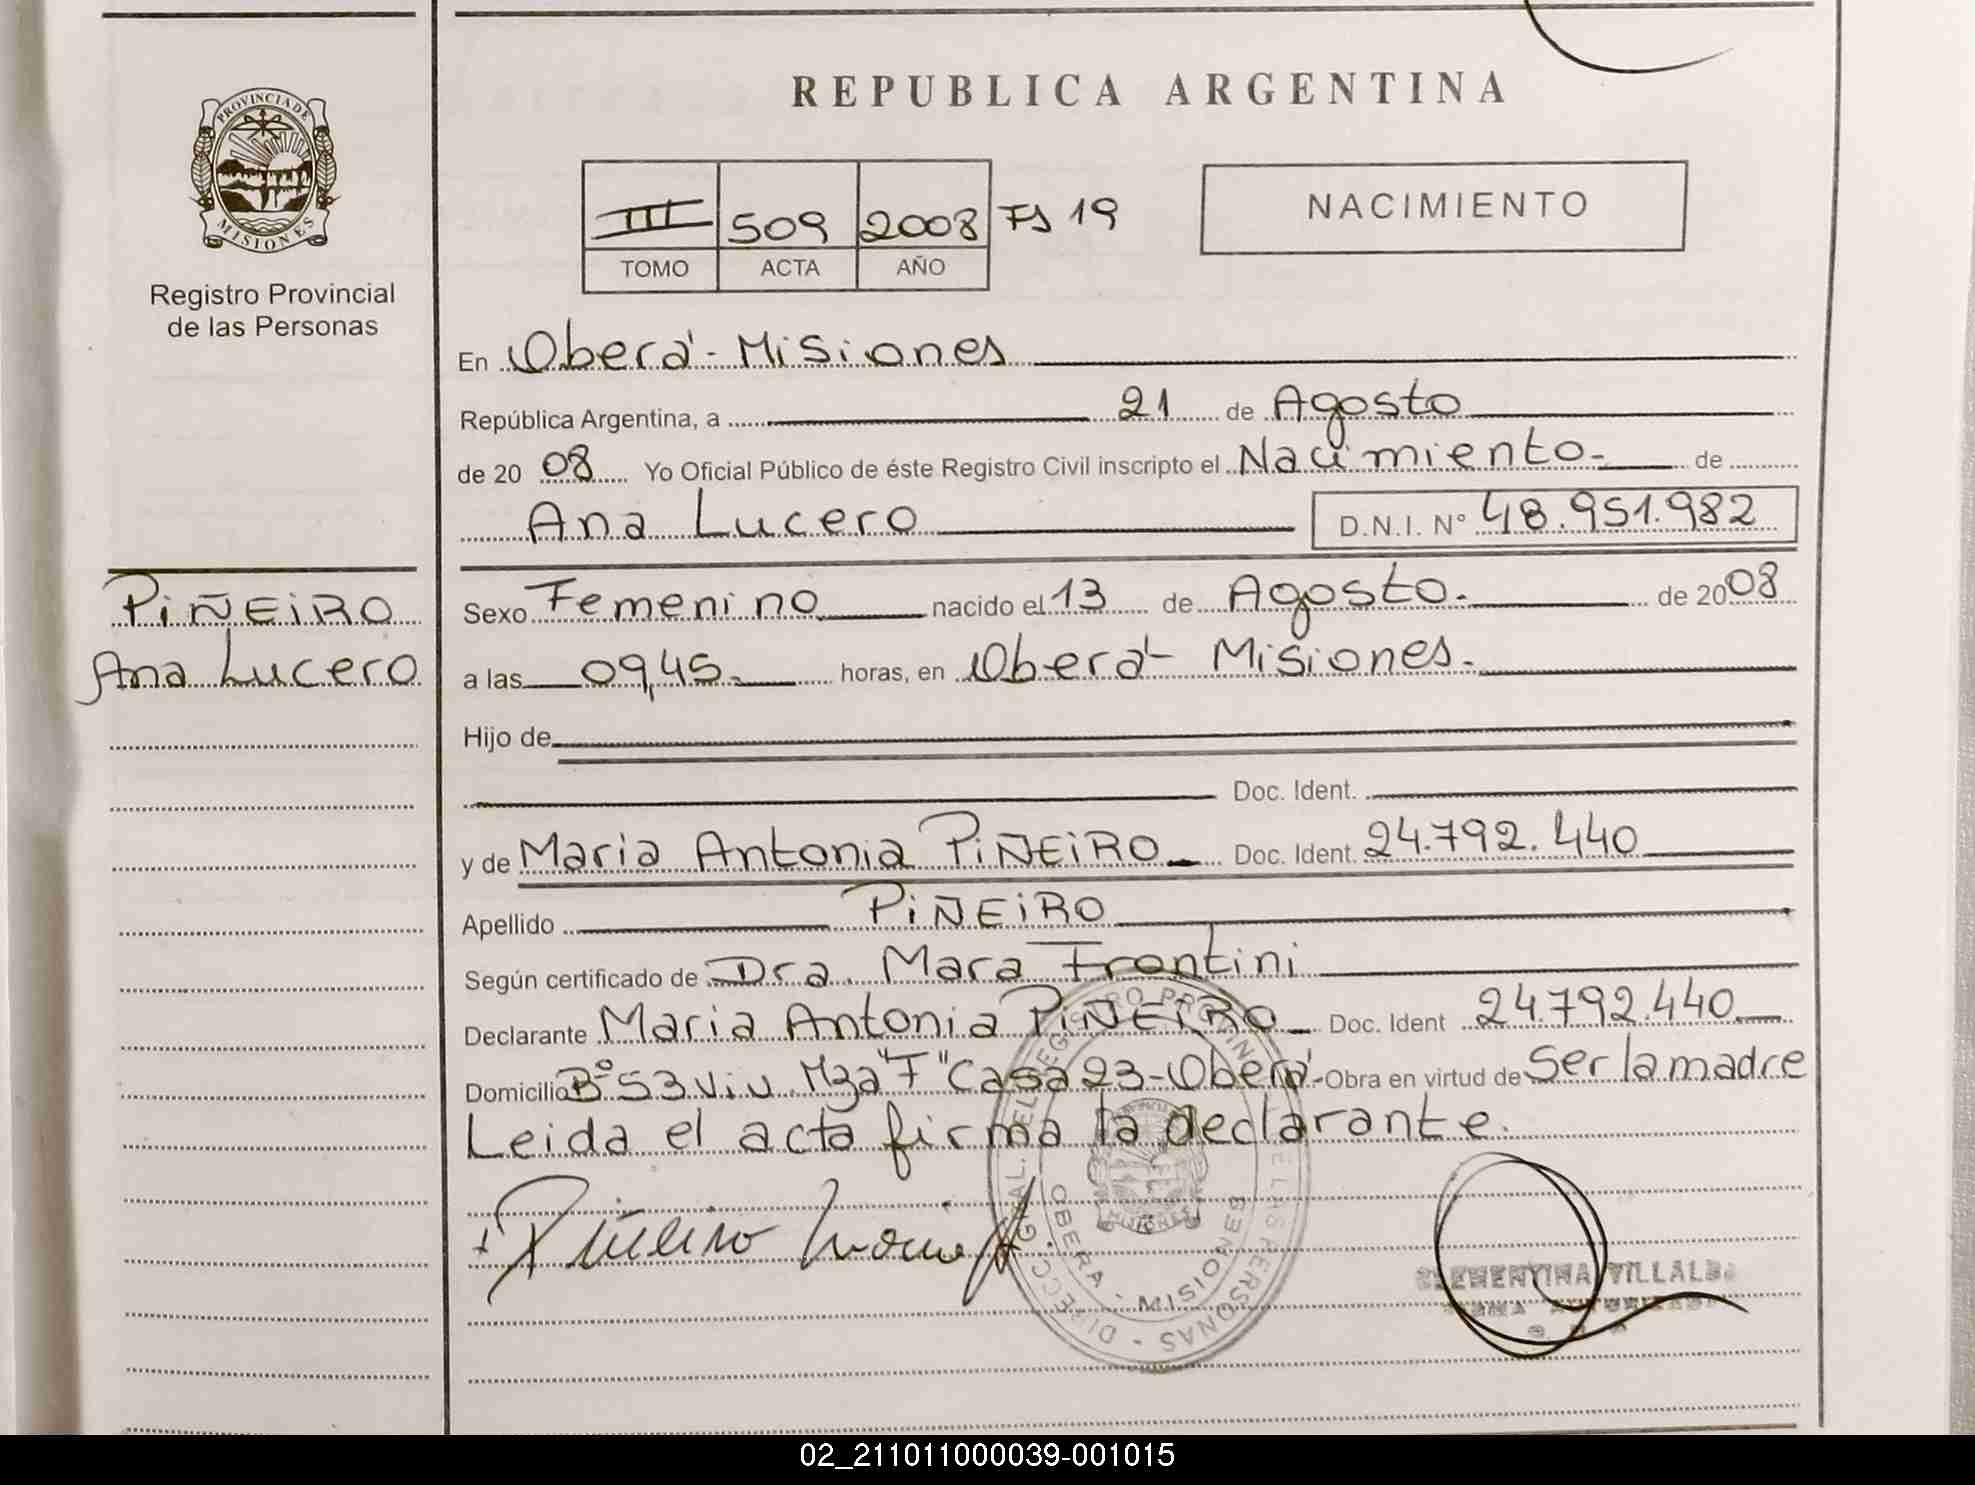 REPUBLICA ARGENTINA
PROVINCIA DE
MISIONES
Registro Provincial
de las Personas
III 509 2008 Fs 19
TOMO ACTA AÑO
NACIMIENTO
En Oberá - Misiones
República Argentina, a 21 de Agosto
de 20 08 Yo Oficial Público de éste Registro Civil inscripto el Nacimiento- de
Ana Lucero D.N.I. N° 48.951.982
PiÑEiRO
Ana Lucero
Sexo Femenino nacido el 13 de Agosto. de 2008
a las 09,45. horas, en Oberá - Misiones.
Hijo de
Doc. Ident.
y de Maria Antonia PiÑEiRO Doc. Ident. 24.792.440
Apellido PiÑEiRO
Según certificado de Dra. Mara Frontini
Declarante Maria Antonia PiÑEiRO Doc. Ident 24.792.440
Domicilio B° 53 Viv. Mza "F" Casa 23 - Oberá - Obra en virtud de Ser la madre
Leida el acta firma la declarante.
Piñeiro Maria A.
DIRECC. GRAL. DEL REGISTRO PROVINC. DE LAS PERSONAS -
OBERA - MISIONES
MISIONES
CLEMENTINA VILLALBA
02_211011000039-001015